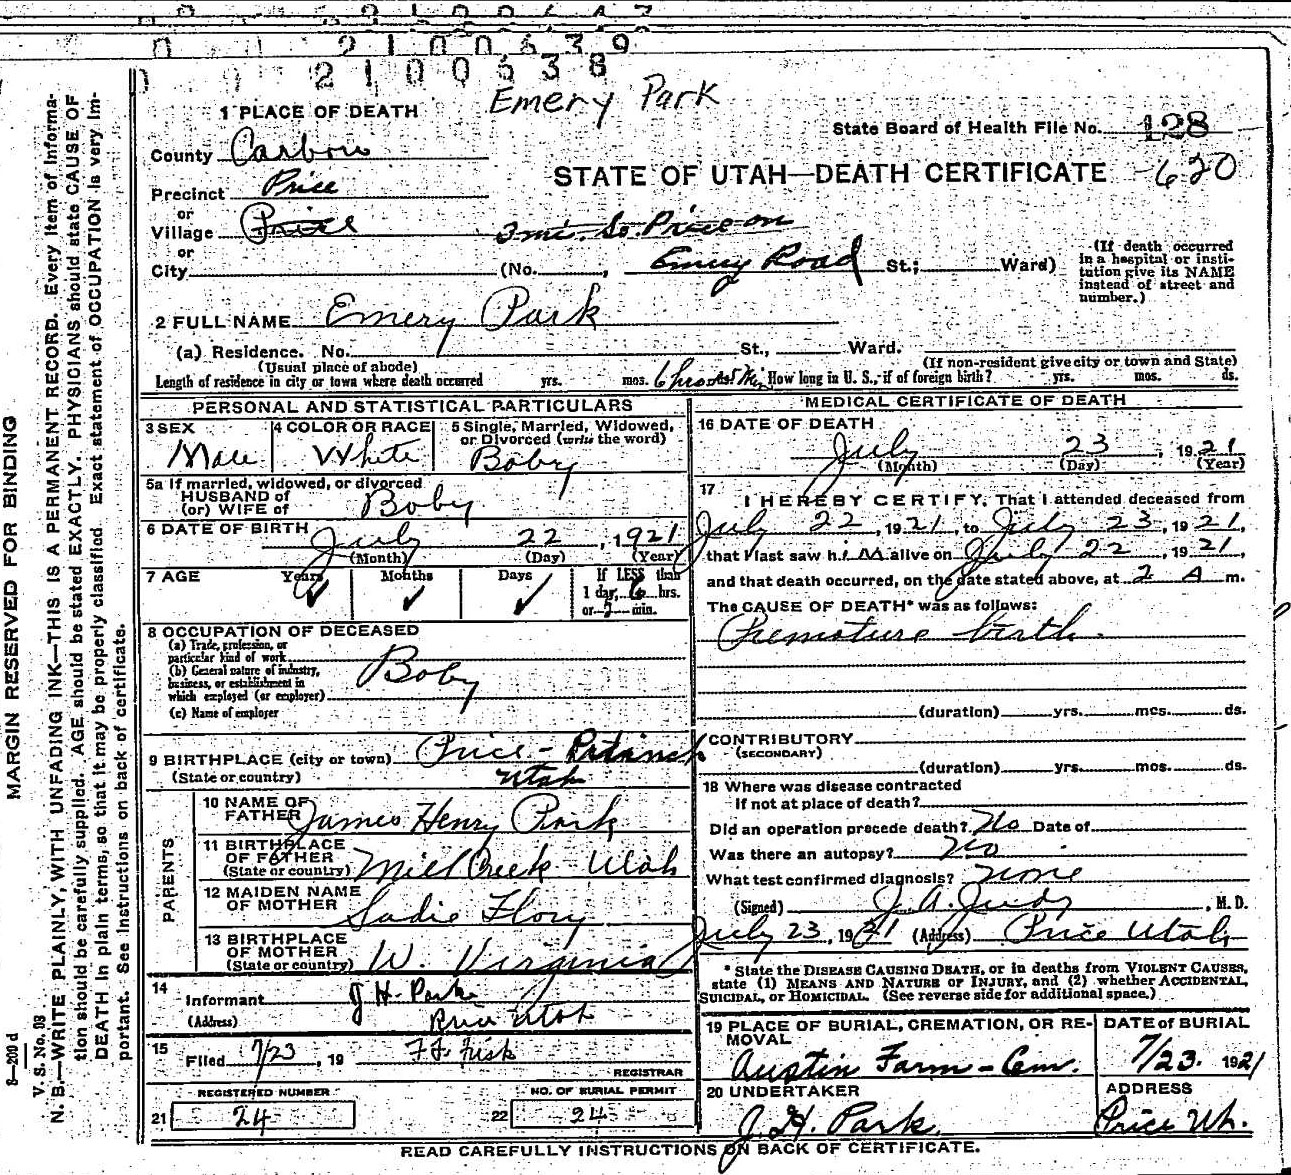 2100639
2100638
Emery Park
1 PLACE OF DEATH
State Board of Health File No. 128
County Carbon
STATE OF UTAH—DEATH CERTIFICATE -620
Precinct Price
or
Village Price
3 mi. So. Price on
or
City (No. , Emery Road St.; Ward)
(If death occurred in a hospital or institution give its NAME instead of street and number.)
2 FULL NAME Emery Park
(a) Residence. No. St., Ward.
(Usual place of abode) (If non-resident give city or town and State)
Length of residence in city or town where death occurred yrs. mos. 6 hrs How long in U. S., if of foreign birth? yrs. mos. ds.
PERSONAL AND STATISTICAL PARTICULARS
3 SEX
Male
4 COLOR OR RACE
White
5 Single, Married, Widowed, or Divorced (write the word)
Boby
5a If married, widowed, or divorced
HUSBAND of
(or) WIFE of Boby
6 DATE OF BIRTH July 22, 1921
(Month) (Day) (Year)
7 AGE Years Months Days If LESS than
1 day, 6 hrs.
or 2 min.
8 OCCUPATION OF DECEASED
(a) Trade, profession, or
particular kind of work
(b) General nature of industry,
business, or establishment in
which employed (or employer)
Boby
(c) Name of employer
9 BIRTHPLACE (city or town) Price -
(State or country) Utah
PARENTS
10 NAME OF FATHER James Henry Park
11 BIRTHPLACE OF FATHER
(State or country) Mill Creek Utah
12 MAIDEN NAME OF MOTHER Sadie Flory
13 BIRTHPLACE OF MOTHER
(State or country) W. Virginia
14
Informant J H. Park
(Address) Price Utah
15
Filed 7/23, 19 F. F. Fisk
REGISTRAR
REGISTERED NUMBER
21 24
NO. OF BURIAL PERMIT
22 24
MEDICAL CERTIFICATE OF DEATH
16 DATE OF DEATH
July 23, 1921
(Month) (Day) (Year)
17
I HEREBY CERTIFY, That I attended deceased from
July 22, 1921, to July 23, 1921,
that I last saw him alive on July 22, 1921,
and that death occurred, on the date stated above, at 2 A m.
The CAUSE OF DEATH* was as follows:
Premature birth
(duration) yrs. mos. ds.
CONTRIBUTORY
(SECONDARY)
(duration) yrs. mos. ds.
18 Where was disease contracted
If not at place of death?
Did an operation precede death? No Date of
Was there an autopsy? No
What test confirmed diagnosis? none
(Signed) J. A. Judy, M. D.
July 23, 1921 (Address) Price Utah
* State the DISEASE CAUSING DEATH, or in deaths from VIOLENT CAUSES,
state (1) MEANS AND NATURE OF INJURY, and (2) whether ACCIDENTAL,
SUICIDAL, or HOMICIDAL. (See reverse side for additional space.)
19 PLACE OF BURIAL, CREMATION, OR REMOVAL
Austin Farm - Cem.
DATE of BURIAL
7/23 1921
20 UNDERTAKER
J. H. Park
ADDRESS
Price Ut.
READ CAREFULLY INSTRUCTIONS ON BACK OF CERTIFICATE.
MARGIN RESERVED FOR BINDING
8—200 d
V. S. No. 08
N. B.—WRITE PLAINLY, WITH UNFADING INK—THIS IS A PERMANENT RECORD. Every item of Information should be carefully supplied. AGE should be stated EXACTLY. PHYSICIANS should state CAUSE OF DEATH in plain terms, so that it may be properly classified. Exact statement of OCCUPATION is very important. See instructions on back of certificate.